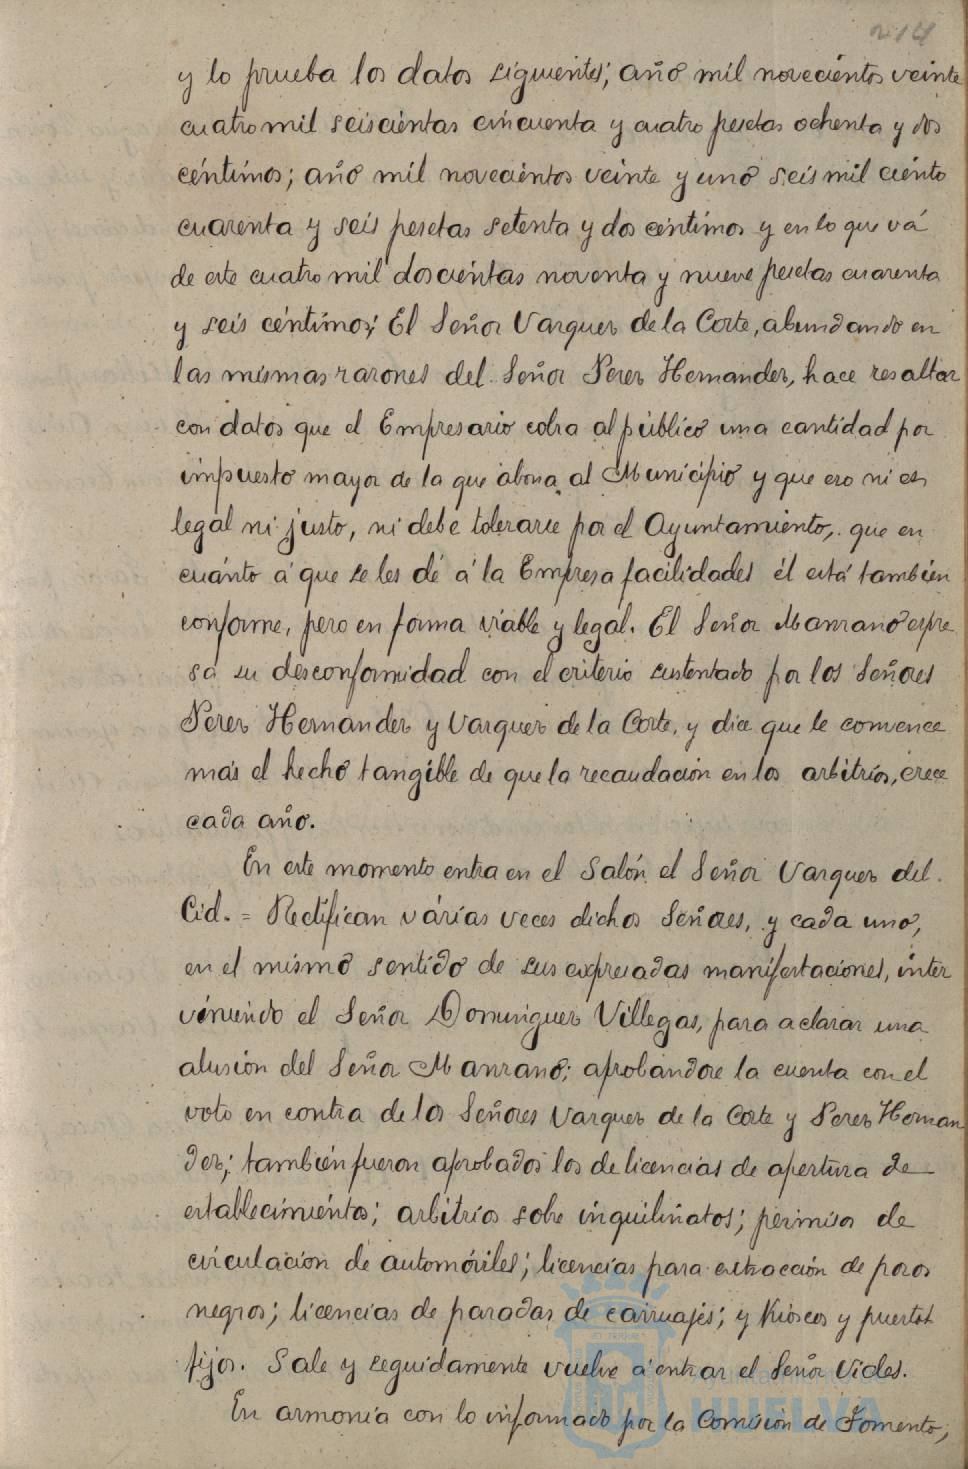 214
y lo prueba los datos siguientes; año mil novecientos veinte
cuatro mil seiscientas cincuenta y cuatro pesetas ochenta y dos
céntimos; año mil novecientos veinte y uno seis mil ciento
cuarenta y seis pesetas setenta y dos céntimos y en lo que vá
de este cuatro mil doscientas noventa y nueve pesetas cuarenta
y seis céntimos; El Señor Vazquez de la Corte, abundando en
las mismas razones del Señor Perez Hernandez, hace resaltar
con datos que el Empresario cobra al público una cantidad por
impuesto mayor de la que abona al Municipio y que eso ni es
legal ni justo, ni debe tolerarse por el Ayuntamiento, que en
cuánto á que se les dé á la Empresa facilidades él está también
conforme, pero en forma viable y legal. El Señor Manzano expre
sa su desconformidad con el criterio sustentado por los Señores
Perez Hernandez y Vazquez de la Corte, y dice que le convence
más el hecho tangible de que la recaudación en los arbitrios, crece
cada año.
En este momento entra en el Salón el Señor Vazquez del
Cid. = Rectifican várias veces dichos Señores, y cada uno,
en el mismo sentido de sus expresadas manifestaciones, inter
viniendo el Señor Dominguez Villegas, para aclarar una
alusión del Señor Manzano; aprobandose la cuenta con el
voto en contra de los Señores Vazquez de la Corte y Perez Hernan
dez; también fueron aprobados los de licencias de apertura de
establecimientos; arbitrios sobre inquilinatos; permisos de
circulación de automóviles; licencias para extracción de pozos
negros; licencias de paradas de carruajes; y Kioscos y puertos
fijos. Sale y seguidamente vuelve á entrar el Señor Vides.
En armonía con lo informado por la Comisión de Fomento,
HUELVA